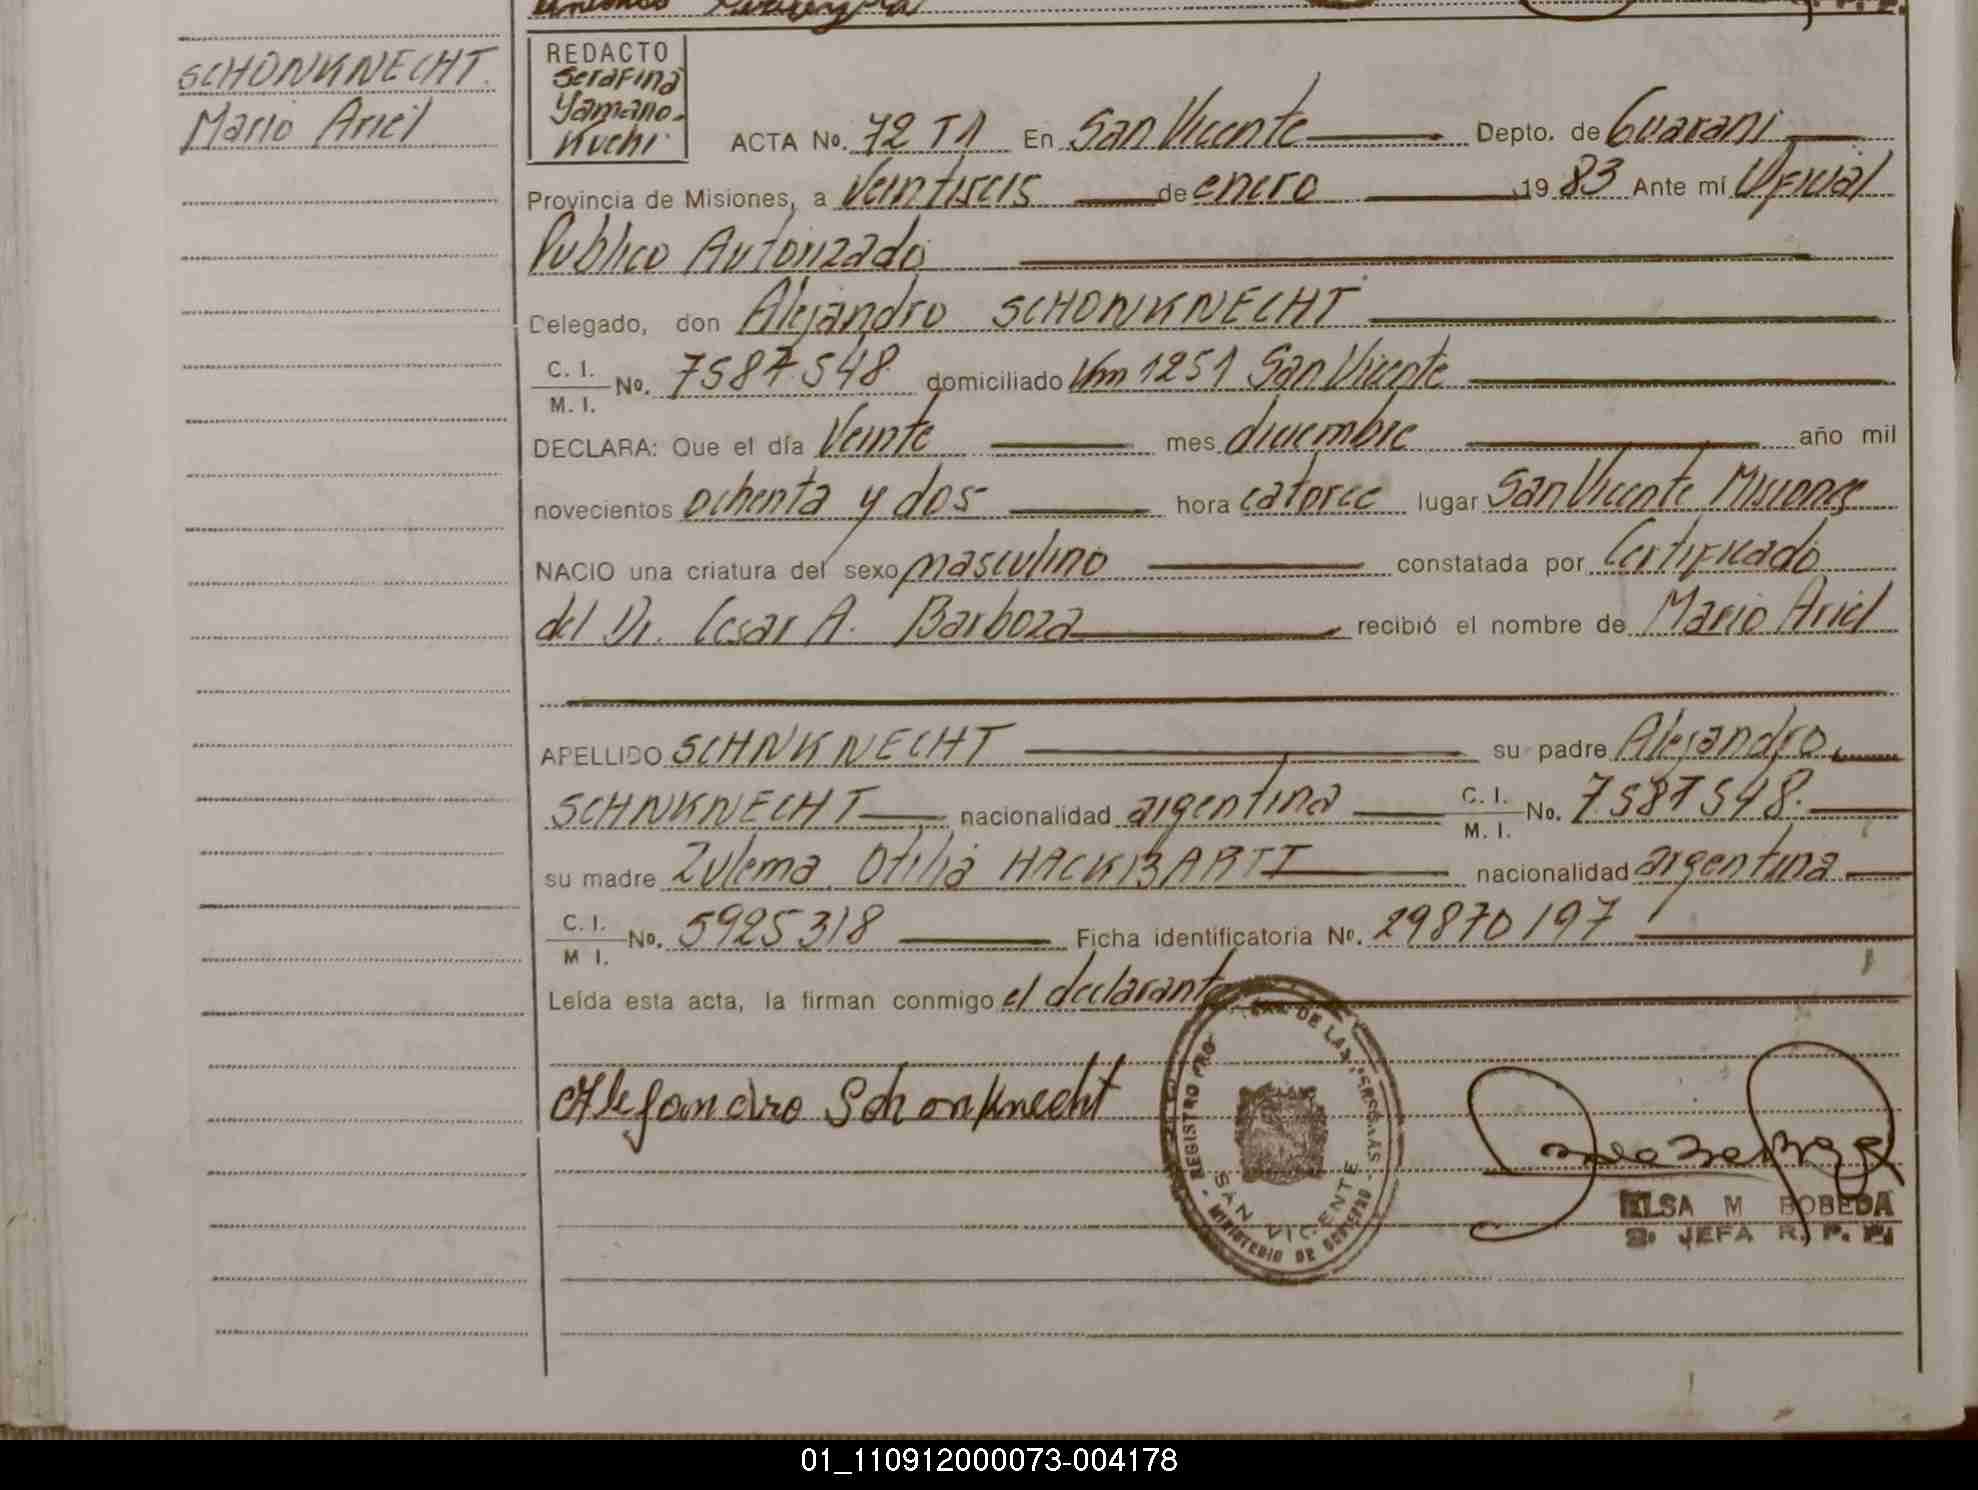 SCHONKNECHT.
Mario Ariel
REDACTO
Serafina
Yamano-
Kuchi
ACTA No. 72 T1 En San Vicente Depto. de Guarani
Provincia de Misiones, a Veintiseis de enero 1983 Ante mí Oficial
Publico Autorizado
Delegado, don Alejandro SCHONKNECHT
C. I.
M. I.
No. 7587548 domiciliado Km 1251 San Vicente
DECLARA: Que el día Veinte mes diciembre año mil
novecientos ochenta y dos hora catorce lugar San Vicente Misiones
NACIO una criatura del sexo masculino constatada por Certificado
del Dr. Cesar A. Barboza recibió el nombre de Mario Ariel
APELLIDO SCHNKNECHT su padre Alejandro
SCHNKNECHT nacionalidad argentina C. I.
M. I. No. 7587548.
su madre Zulema Otilia HACKBARTT nacionalidad argentina
C. I.
M I.
No. 5925318 Ficha identificatoria No. 29870197
Leída esta acta, la firman conmigo el declarante
Alejandro Schonknecht
REGISTRO PRO DE LAS PERSONAS
SAN VICENTE
MINISTERIO DE GOBIERNO
ELSA M BOBEDA
2º JEFA R. P. P.
01_110912000073-004178